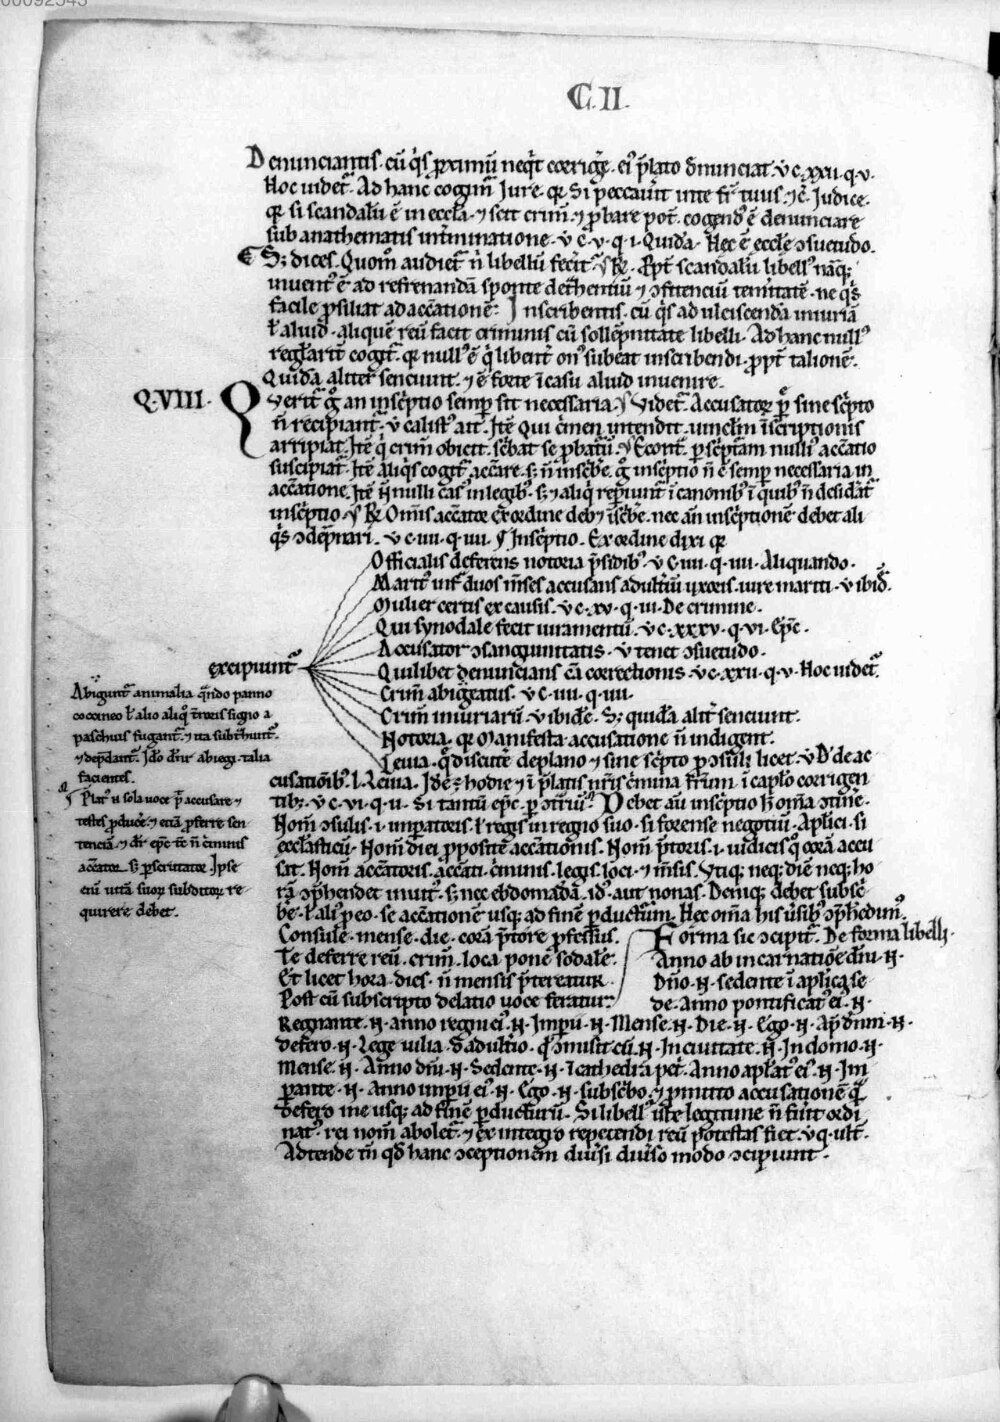 C. II.
Denunciantis. cū q̇s proximū neq̇t corriġe. ei' p̄lato d̄nunciat. v̇ c. xxii. q. v.
Hoc uidet̄. Ad hanc cogim̄ Iure. qr Si peccauīt in te fr̄ tuus. ⁊ c̄. Judice.
qr si scandalū ē in eccl̄a. ⁊ scit crim̄. ⁊ p̱bare pot̄. cogend' ē denunciare
sub anathematis int̄minatione. v̇ c. v. q. i. Quidā. Hec ē eccl̄e ↄsuetudo.
S; dices. Quom̊ audiet̄ n̄ libellū fecīt. R̷. P̱pt̄ scandalū libell' nāq;
inuent' ē ad refrenandā sponte def̄hentiū ⁊ ↄfitenciū temītatē. ne q̇s
facile p̱siliat ad accātionē. Inscribentis. cū q̇s ad ulciscendā iniuriā
ł aliud. aliquē reū facit criminis cū sollēpnitate libelli. Ad hanc null'
reglarīt cogit̄. qr null' ē q̇ libent̄ on' subeat inscribendi. p̱pt̄ talionē.
Quidā alit̄ senciunt. ⁊ ē forte ī casu aliud inuenire.
Q. VIII. Querit̄ ġ an insc̄ptio semp̱ sit necessaria. Videt̄. Accusator p̱ sine sc̄pto
n̄ recipiant̄. v̇ calist' ait. Itē Qui c̄men intendit. uinclm̄ īscriptionis
arripiat. Itē q̇ crim̄ obicit. sc̄bat se p̱batū. Econt̄. p̱ sc̄ptam nulli' accātio
suscipiat̄. Itē aliq̇s cogit̄ accāre. s; n̄ insc̄be. ġ insc̄ptio n̄ ē semp̱ necessaria in
accātione. Itē n̄nulli cas' in legib'. s; ⁊ aliq̇ rep̱iunt̄ ī canonib' ī quib' n̄ desidāt̄
insc̄ptio. R̷. Om̄is accātor ex ordine deb⁊ īsc̄be. nec añ insc̄ptionē debet ali
q̇s ↄdēp̄nari. v̇ c. iiii. q. iiii. ¶ Insc̄ptio. Ex ordine dixi qr
Officialis deferens notoria p̄sidib'. v̇ c. iiii. q. iiii. Aliquando.
Marit' inf̄ duos m̄ses accusans adult̄iū uxoris. iure mariti. v̇ ibid̄.
Mulier certis ex causis. v̇ c. xv. q. iii. De crimine.
Qui synodale fecit iuramentū. v̇ c. xxxv. q. vi. Ep̄c.
Accusator ↄsanguinitatis. v̇ tenet ↄsuetudo.
excipiunt̄ Quilibet denuncians cā correctionis. v̇ c. xxii. q. v. Hoc uidet̄.
Crim̄ abigeatus. v̇ c. iiii. q. iiii.
Crim̄ iniuriarū. v̇ ibidē. S; quidā alit̄ senciunt.
Notoria. qr Manifesta accusatione n̄ indigent.
Leuia. q̄ discutē deplano ⁊ sine sc̄pto p̱ↄsuli licet. v̇ D' de ac
Abigunt̄ animalia q̄ndo panno
coccineo ł alio aliq̊ t̄roris signo a
pascuis fugant̄. ⁊ ita subt̄hunt̄.
⁊ dep̄dant̄. Ido dn̄r abiegi. talia
facientes.
Plat' n̄ sola uoce p̄t accusare ⁊
testes p̱duce. ⁊ etiā p̱ferre sen
tenciā. ⁊ dr̄ ep̄c tc̄ n̄ c̄iminis
accātor. s; p̱scrutator. Ipse
enī uitā suor subditor re
quirere debet.
cusationib'. l. Leuia. Idē ē hodie ⁊ ī p̄latis nr̄is c̄mina fr̄um. ī capl̄o corrigen
tib;. v̇ c. vi. q. ii. Si tantū ep̄c. Debet aū insc̄ptio h̄ om̄a ↄtine.
Nom̄ ↄsulis. i. imp̱atoris. ł regis in regno suo. si forense negotiū. Aplīci. si
eccl̄asticū. Nom̄ diei p̱positē accātionis. Nom̄ p̄toris. i. iudicis q̊ corā accu
sat̄. Nom̄ accātoris. accāti. c̄minis. legis. loci. ⁊ m̄sis. Vtiq; neq; diē neq; ho
rā ↄp̄hendet inuit'. s; nec ebdomadā. id' aut nonas. Deniq; debet subsc̄
be. ł ali' p̱ eo. se accātionē usq; ad finē p̱ducturum. Hec om̄a his ūsib' ↄp̄hedim̄'.
Consule. mense. die. corā p̄tore p̱fessus.
Te deferre reū. crim̄. loca pone sodale.
Et licet hora. dies. n̄ mensis p̄tereatur.
Post cū subscripto delatio uoce feratur.
Forma sic ↄcipit̄. De forma libelli.
Anno ab incarnatiōe dn̄i .N.
Dn̄o .N. sedente ī aplīca se
de. Anno pontificat' ei'. N.
Regnante. N. anno regni ei'. N. Imp̱ii. N. Mense. N. Die. N. Ego. N. Ap̱ d̄nm. N.
defero. N. Lege iulia d' adult̄io. q̱ ↄmisit cū. N. In ciuitate. N. In domo. N.
Mense. N. Anno dn̄i. N. Sedente. N. ī cathedra pet̄. Anno aplāt' ei'. N. Im
p̱ante. N. Anno imp̱ii ei'. N. Ego. N. subsc̄bo. ⁊ p̱mitto accusationē q̄
defero me usq; ad finē p̱ducturū. Si libell' iste legitime n̄ fūit ordi
nat'. rei nom̄ abolet̄. ⁊ ex integro repetendi reū potestas fiet. v̇ q. ult̄.
Adtende tn̄ qd̄ hanc ↄceptionem diūsi diūso modo ↄcipiunt.